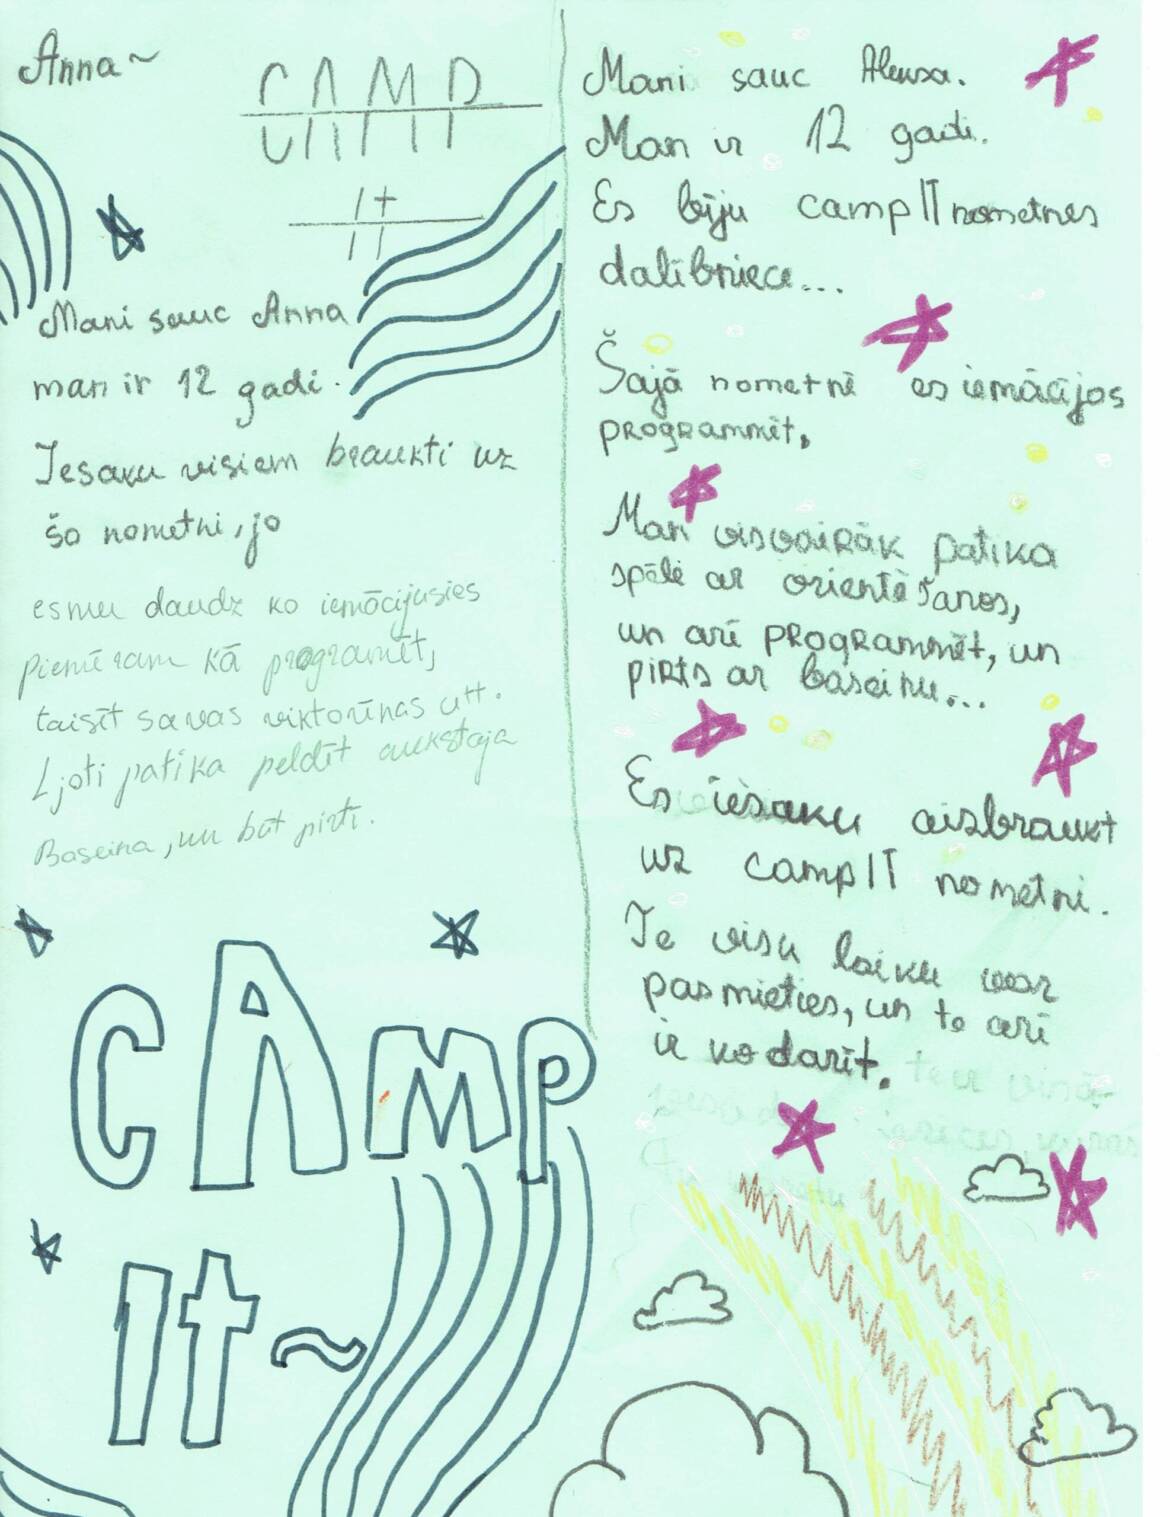 Anna~
CAMP
It
Mani sauc Anna
man ir 12 gadi.
Iesaku visiem braukti uz
šo nometni, jo
esmu daudz ko iemācijusies
piemēram kā programēt,
taisīt savas viktorīnas utt.
Ļoti patika peldēt aukstaja
Baseina, un būt pirti.
CAMP
It~
Mani sauc Aleksa.
Man ir 12 gadi.
Es biju campIT nometnes
dalībniece...
Šajā nometnē es iemācījos
programmēt,
Man visvairāk patika
spēle ar orientēšanos,
un arī programmēt, un
pirts ar baseinu...
Es iesaku aizbraukt
uz campIT nometni.
Te visu laiku var
pasmieties, un te arī
ir ko darīt.